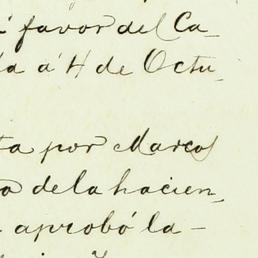 favor del Ca_
a á 4 de Octu_
ta por Marcos
o de la hacien_
aprobó la -